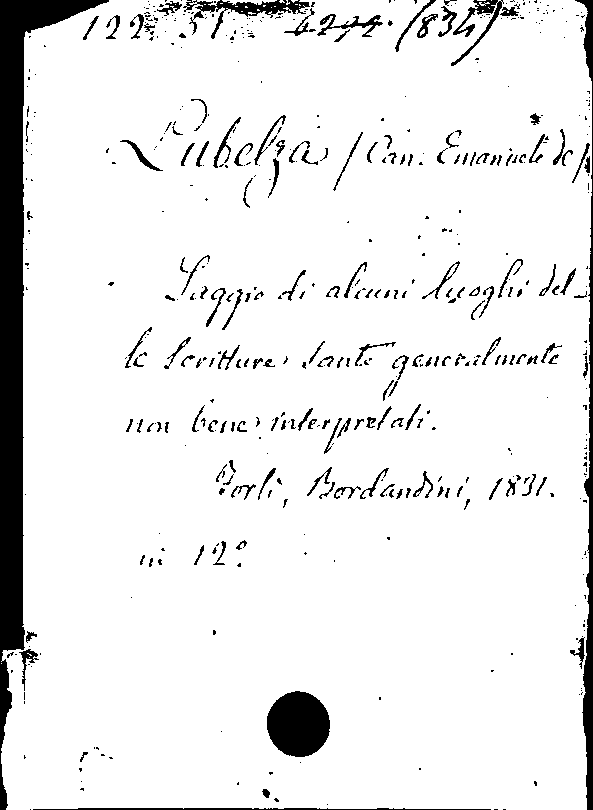 122. 51. 4272. (834)
Lubelza / Can. Emanuele de /
Saggio di alcuni luoghi del-
le Scritture sante generalmente
non bene interpretati.
Forlì, Bordandini, 1831.
in 12°